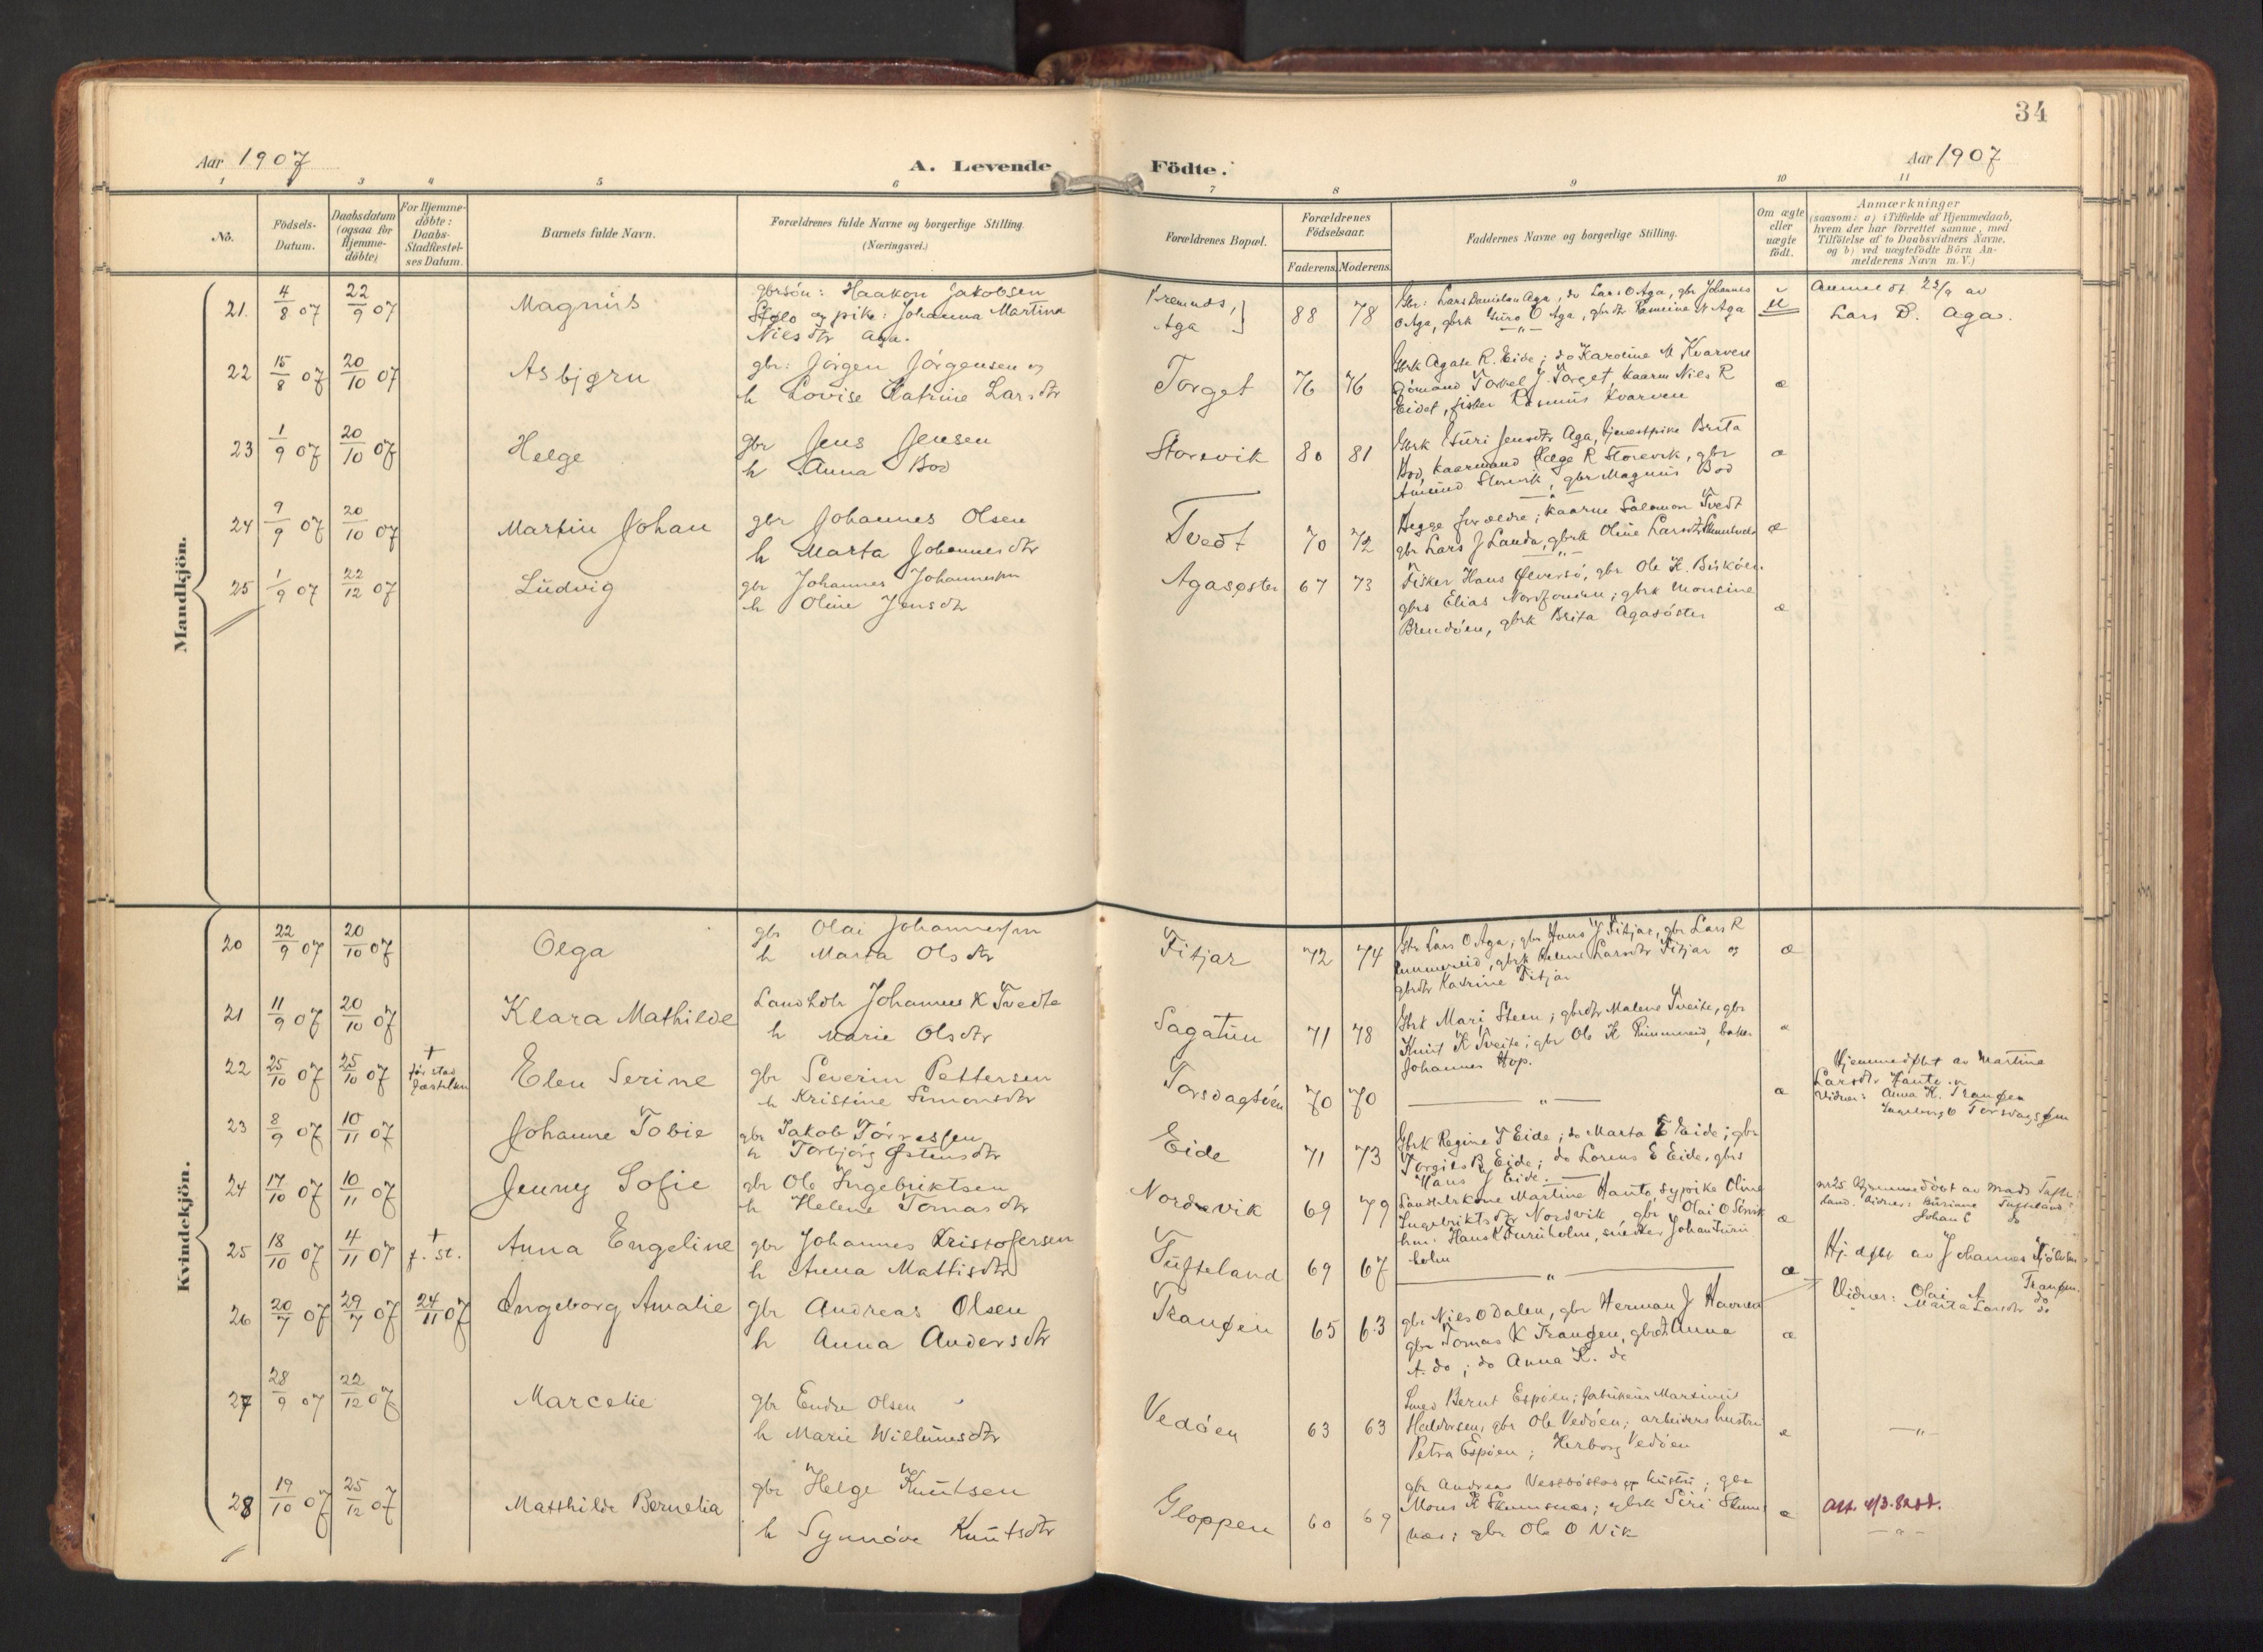 34
Aar 1907
A. Levende Födte.
Aar 1907
1 3 4 5 6 7 8 9 10 11
No.
Födsels-
Datum.
Daabsdatum
(ogsaa for
Hjemme-
döbte)
For Hjemme-
döbte:
Daabs-
Stadfæstel-
ses Datum.
Barnets fulde Navn.
Forældrenes fulde Navne og borgerlige Stilling.
(Næringsvei.)
Forældrenes Bopæl.
Forældrenes
Födselsaar.
Faderens. Moderens.
Faddernes Navne og borgerlige Stilling.
Om ægte
eller
uægte
födt.
Anmærkninger
(saasom: a) i Tilfælde af Hjemmedaab,
hvem der har forrettet samme, med
Tilföielse af to Daabsvidners Navne,
og b) ved uægtefödte Börn An-
melderens Navn m. V.)
Mandkjön.
21. 4/8 07 22/9 07 Magnus
gbrsön: Haakon Jakobsen
og pike: Johanna Martina
Nilsdtr Aga.
Aga 88 78
Gbr: Lars Danielsen Aga, do Lars O Aga, gbr Johannes
O Aga, gbrk Guro O Aga, gbrdtr N Aga
u
Anmeldt 22/9 av
Lars D. Aga.
22 15/8 07 20/10 07 Asbjørn
gbr: Jörgen Jörgensen og
h Lovise Katrine Larsdtr
Torget 76 76
Gbrk Agate R. Eide; do Karoline M Kvarven
sjömand Torkel J. Torget, kaarm Nils R
Eidet, fisker Rasmus Kvarven
æ
23 1/9 07 20/10 07 Helge
gbr Jens Jensen
h Anna Bod
Storevik 80 81
Gbrk Guri Jensdtr Aga, tjenestpike Brita
Bod, kaarmand Helge R Storevik, gbr
Amund Storevik, gbr Magnus Bod
æ
24 9/9 07 20/10 07 Martin Johan
gbr Johannes Olsen
h Marta Johannesdtr
Tvedt 70 72
Begge forældre; kaarm Salomon Tvedt
gbr Lars J Landa, gbrk Oline Larsdtr
æ
25 1/9 07 22/12 07 Ludvig
gbr Johannes Johannessen
h Oline Jensdtr
Agasøster 67 73
Fisker Hans Øversö, gbr Ole K.
gbrs Elias ; gbrk Monsine
Brendöen, gbrk Brita Agasöster
æ
Kvindekjön.
20 22/9 07 20/10 07 Olga
gbr Olai Johannessen
h Marta Olsdtr
Fitjar 72 74
Gbr Lars O Aga, gbr Hans J Fitjar, gbr Lars R
Rimmereid, gbrk Larsdtr Fitjar og
gbrdtr Katrine Fitjar
æ
21 11/9 07 20/10 07 Klara Mathilde
Landhdlr Johannes K Tvedte
h Marie Olsdtr
Sagatun 71 78
Gbrk Mari Steen; gbrdtr Malene Tveite, gbr
Knut K Tveite; gbr Ole K Rimmereid, baker
Johannes Hop.
æ
22 25/10 07 25/10 07 † før stad fæstelsen Elen Serine
gbr Severin Pettersen
h Kristine Simonsdtr
Torsdagsöen 70 70
— " —
æ
Hjemmedøbt av Martine
Larsdtr
Vidner: Anna K. Trangøen
Ingeborg O Torsdagsøen
23 8/9 07 10/11 07 Johanne Tobie
gbr Jakob Törressen
h Torbjörg Østensdtr
Eide 71 73
Gbrk Regine T Eide; do Marta E Eide; gbr
Torgils B Eide; do Lorens E Eide, gbrs
Hans J Eide.
24 17/10 07 10/11 07 Jenny Sofie
gbr Ole Ingebriktsen
h Helene Tomasdtr
Nordvik 69 79
Martine Hanto, sypike Oline
Ingebriktsdtr Nordvik gbr Olai O Sörvik
hm: Hans K Furuholm, snedker Johan Furu
holm
æ
nr 25 hjemmedöbt av Mads Tufte-
land. Vidner: Tufteland
Johan C do
25 18/10 07 4/11 07 † f. st. Anna Engeline
gbr Johannes Kristofersen
h Anna Mattisdtr
Tufteland 69 67
— " —
æ
Hj. døbt av Johannes
Trangøen.
Vidner: Olai A do
Marta Larsdtr do
26 20/7 07 29/7 07 24/11 07 Ingeborg Amalie
gbr Andreas Olsen
h Anna Andersdtr
Trangøen 65 63
gbr Nils O Dalen, gbr Herman J Havnen
gbr Tomas K Trangøen, gbrdtr Anna
A. do; do Anna K. do
æ
27 28/9 07 22/12 07 Marcelie
gbr Endre Olsen
h Marie Willumsdtr
Vedöen 63 63
Smed Bernt Espöen; Martinus
Haldorsen, gbr Ole Vedöen; arbeiders hustru
Petra Espöen; Herborg Vedöen
æ
— " —
28 19/10 07 25/12 07 Matthilde Bernelia
gbr Helge Knutsen
h Synnöve Knutsdtr
Gloppen 60 69
gbr Andreas og hustru; gbr
Mons K Skumsnes; gbrk Siri Skums
nes; gbr Ole O Vik
æ
Att. 4/3.82
— " —